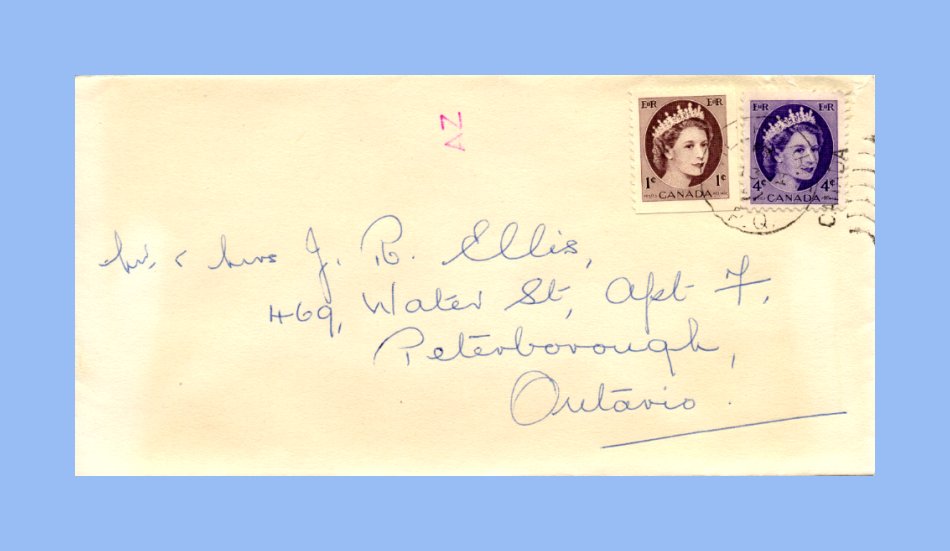 AZ
E II R E II R
1¢ 1¢
CANADA
E II R E II R
4¢ 4¢
CANADA
CANADA
Mr. & Mrs J. R. Ellis,
469, Water St, Apt 7,
Peterborough,
Ontario.